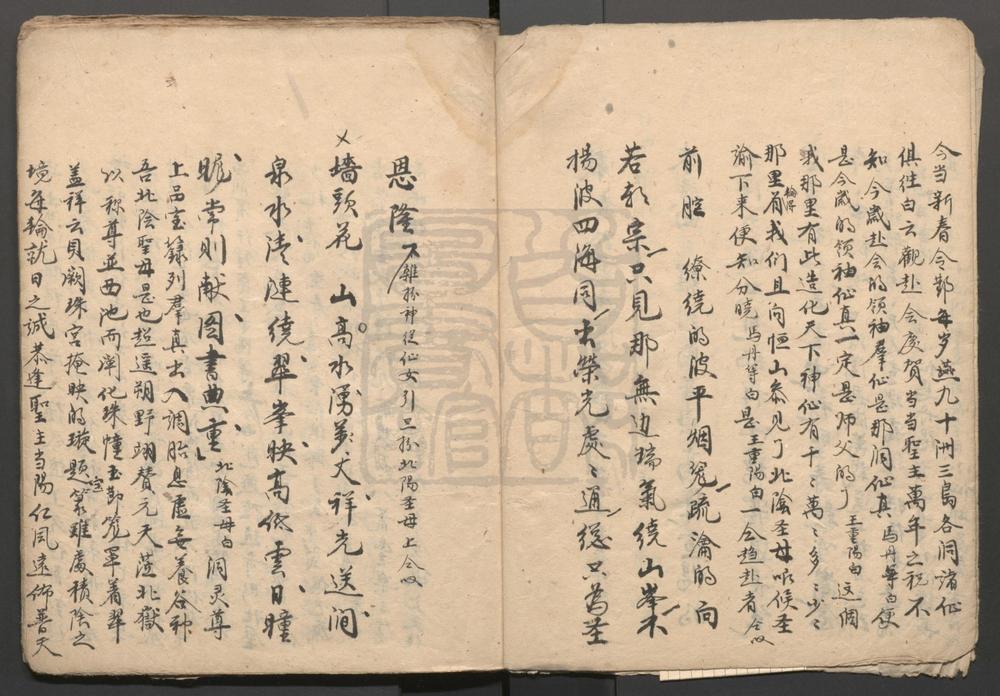 今当新春令節每岁燕九十洲三島各洞诸仙
俱往白云觀赴会庆贺当当聖主萬年之祝不
知今歲赴会的领袖羣仙是那洞仙真馬丹等白便
是今歲的领袖仙真一定是师父的了王重陽白这個
我那里有此造化天下神仙有千〻萬〻多〻少〻
那里輪得有我们且向恒山參见了北陰圣母咏候圣
谕下来便知分曉馬丹等白是王重陽白一仝趋赴者仝吹
前腔 繚绕的波平烟冤疏瀹的向
若朝宗只見那無边瑞氣绕山峯不
揚波四海同出榮光處〻通總只为圣
恩隆下雜扮神從仙女引旦扮北陽圣母上仝吹
墻頭花 山高水湧美丈祥光送澗
泉水清漣绕翠峯映高依雲日曈
昽常则献图書典重北陰圣母白洞灵尊
上品宝籙列羣真出入调胎息虚無養谷神
吾北陰聖母是也超遥朔野翊替元天蒞北獄
以称尊並西池而溥化珠幢玉節笼罩着翠
盖祥云貝阙珠宫掩映的璇题宝篆雖處積陰之
境每輪就日之誠恭逢聖主当陽仁風遠佈普天